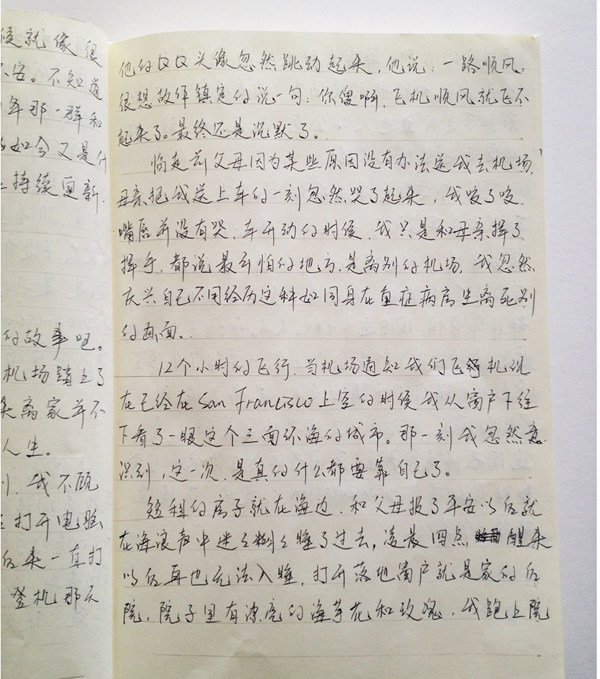 候就像很
不安。不知道
年那一群和
如今又是什
持续更新.
的故事吧。
机场踏上了
离家并不
人生。
我不顾
打开电脑
后来一直打
登机那天
他的QQ头像忽然跳动起来,他说:一路顺风。
很想故作镇定的说一句:你傻啊,飞机顺风就飞不
起来了。最终还是沉默了。
临走前父母因为某些原因没有办法送我去机场.
母亲把我送上车的一刻忽然哭了起来,我咬了咬
嘴唇并没有哭.车开动的时候.我只是和母亲挥了
挥手.都说最可怕的地方.是离别的机场.我忽然
庆兴自己不用经历这种如同身在重症病房生离死别
的画面.
12个小时的飞行.当机场通知我们飞机现
在已经在San Francisco上空的时候我从窗户下往
下看了一眼这个三面环海的城市。那一刻我忽然意
识到,这一次,是真的什么都要靠自己了。
短租的房子就在海边.和父母报了平安以后就
在海浪声中迷迷糊糊睡了过去,凌晨四点醒来
以后再也无法入睡,打开落地窗户就是家的后
院,院子里有漂亮的海芋花和玫瑰,我跑上院